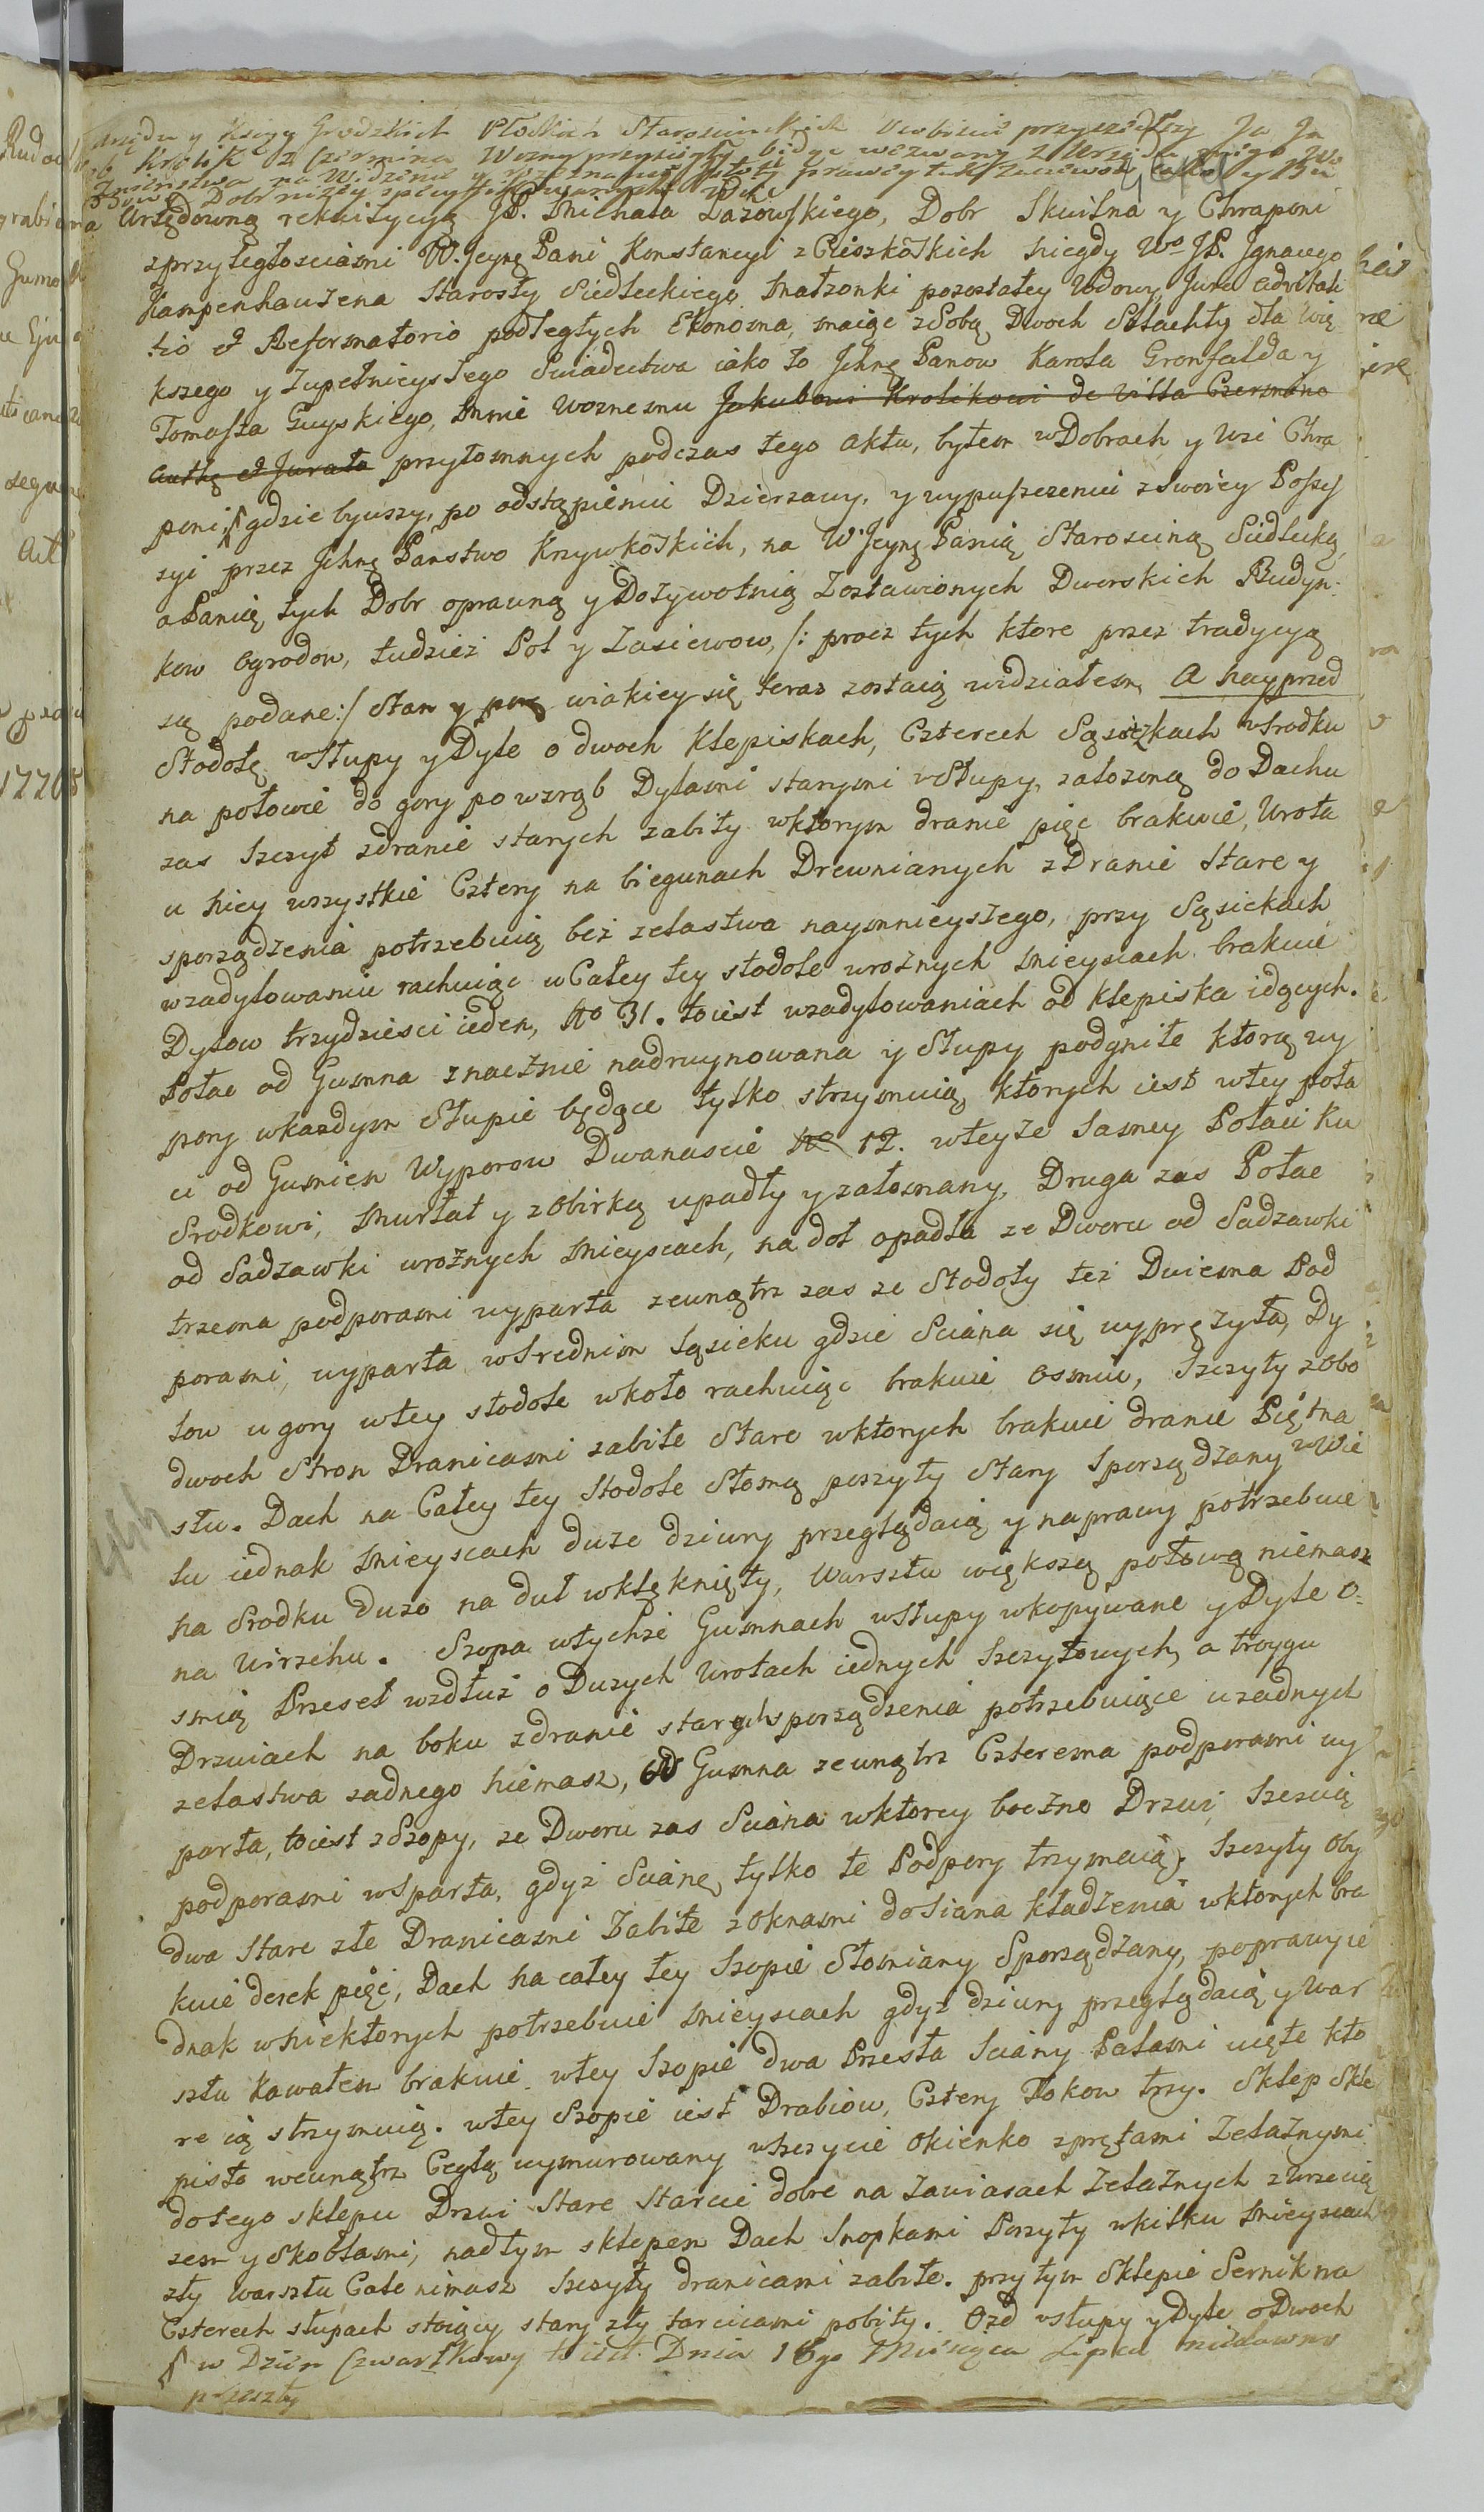 Urzędu y Xiąg Grodzkich Płockich Staroscinskich Osobiscie przyszedszy Ja Ja
kub Krolik z Czermina Wozny przysięgły będąc wezwany z Urzędu mego Wo
znienstwa na Widzenie y
Dobr nizey specyfikowanych
Urzędowną rekwizycyą JP. Michała Łazowskiego, Dobr Skuilna y Chraponi
zprzyległosciami W. Jeymę Pani Konstancyi z Cieszkoskich niegdy Wo JP. Ignacego
Kampenhauzena Starosty Siedleckiego Małzonki pozostałey Wdowy Jure advitali
tio et Reformatorio podległych Ekonoma, maiąc zSobą Dwoch Szlachty dla Wię
kszego y Zupełnieyszego Swiadectwa iako to Jchmę Panow Karola Gronfalda y
Tomasza Guyskiego, Mnie Woznemu Jakubowi Krolikowi de Villa Czermino
Authę et Jurata przytomnych podczas tego aktu, byłem wDobrach y Wsi Chra
poni gdzie bywszy, po odstąpieniu Dzierzawy, y wypuszczeniu zswoiey Possy
syi przez Jchmę Panstwo Krzywkoskich, na W Jeymę Panią Staroscinę Siedlecką,
a Panią tych Dobr oprawną y Dozywotnią Zostawionych Dworskich Budyn:
kow Ogrodow, tudziez Pol y Zasiewow, /: procz tych ktore przez tradycyą
są podane:/ Stan y porę wiakiey się teraz zostaią widziałem, A nayprzed
Stodołę wSłupy y Dyle o dwoch Klepiskach, Czterech Sąsiezkach wsrodku
na połowie do gory powzrąb Dylami starymi wSłupy, załozoną do Dachu
zas Szczyt zdranic starych zabity wktorym dranic pięc brakuie, Wrota
u niey wszystkie Cztery na biegunach Drewnianych zDranic Stare y
sporządzenia potrzebuią bez zelastwa naymnieyszego, przy Sąsiekach
wzadylowaniu rachuiąc wCałey tey stodole wroznych mieyscach brakuie
Dylow trzydziesci ieden, No 31. to iest wzadylowaniach od klepiska idących.
Połac od Gumna znacznie nadruynowana y Słupy podgniłe ktorą wy
pory wkazdym Słupie będące tylko strzymuią, ktorych iest wtey poła
ci od Gumien Wyporow Dwanascie No 12. wteyze Samey Połaci ku
Srodkowi, Murłat y zobirką upadły y załomany, Druga zas Połac
od Sadzawki wroznych mieyscach, na doł opadła ze Dworu od Sadzawki
trzema podporami wyparta zewnątrz zas ze Stodoły tez Dwiema Pod
porami, wyparta wSrednim Sąsieku gdzie Sciana się wypręzyła, Dy
low ugory wtey stodole wkoło rachuiąc brakuie Osmiu, Szczyty zobo
dwoch Stron Dranicami zabite Stare wktorych brakuie dranic Piętna
stu. Dach na Całey tey Stodole Słomą poszyty Stary Sporządzany wWie
lu iednak mieyscach duze dziury przeglądaią y naprawy potrzebuie
na Srodku duzo na duł wklęknięty, Warsztu większą połową niemasz
na Wirzchu. Szopa wtychze Gumnach wSłupy wkopywane y Dyle o=
smią Przeseł wzdłuz o Duzych Wrotach iednych Szczytowych, a troygu
Drzwiach na boku zdranic starych sporządzenia potrzebuiące uzadnych
zelastwa zadnego niemasz, od Gumna zewnątrz Czterema podporami wy
parta, to iest zSzopy, ze Dworu zas Sciana wktorey boczne Drzwi Szescią
podporami wSparta, gdyz Scianę tylko te Podpory trzymaią, Szczyty Oby
dwa Stare złe Dranicami Zabite zoknami doSiana kładzenia wktorych bra
kuie desek pięć, Dach na całey tey Szopie Słomiany Sporządzany, poprawy ie
dnak wniektorych potrzebuie mieyscach gdyz dziury przeglądaią y War
sztu kawałem brakuie. wtey Szopie dwa Przesła Sciany Palami ucięte kto
re ią strzymuią. wtey Szopie iest Drabiow, Cztery Tokow trzy. Sklep Skle
pisto wewnątrz Cegłą wymurowany wszczycie Okienko zprętami Zelaznymi
dotego sklepu Drzwi Stare Starcic dobre na Zawiasach Zelaznych zWrzecią
zem y Skoblami, nadtym sklepem Dach Snopkami Poszyty wkilku Mieyscach
zły Warsztu Cale nimasz Szczyty dranicami zabite. przytym Sklepie Sernik na
Czterech słupach stoiący stary zły tarcicami pobity. Ozd wsłupy y Dyle o Dwoch
w Dzien Czwartkowy to iest Dnia 16go Miesiąca Lipca niedawno
przeszły